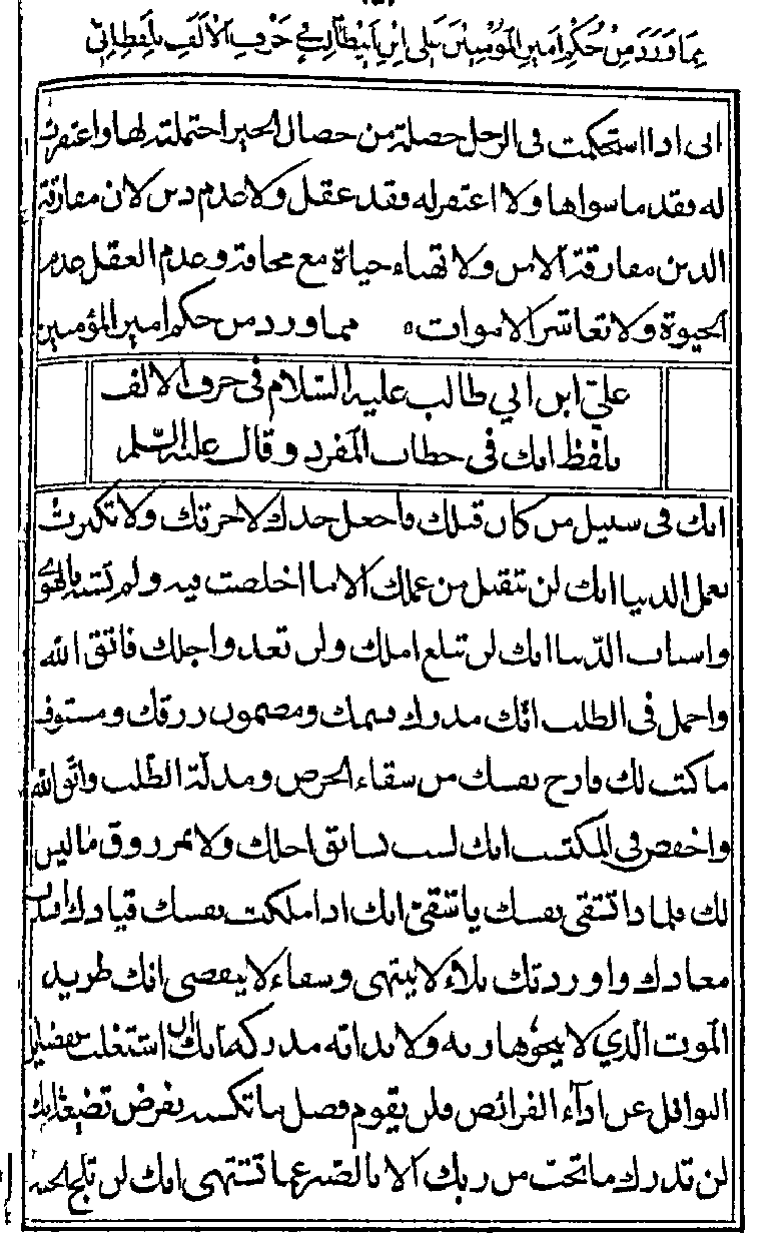 مما ورد من حكم امير المؤمنين علي ابن ابيطالب في حرف الالف بلفظ اني
اني اذا استحكمت في الرجل خصلة من خصال الخير احتملته لها واغتفرت
له فقد ما سواها ولا اغتفر له فقد عقل ولا عدم دين لان مفارقة
الدين مفارقة الامن ولا تهناء حياة مع مخافة وعدم العقل عدم
الحيوة ولا تعاشر الاموات ه مما ورد من حكم امير المؤمنين
عليّ ابن ابي طالب عليه السّلام في حرف الالف
بلفظ انك في خطاب المفرد وقال عليه السّلم
انك في سبيل من كان قبلك فاجعل جدك لاخرتك ولا تكترث
بعمل الدنيا انك لن تتقبل من عملك الا ما اخلصت فيه ولم تشبه بالهوى
واسباب الدّنيا انك لن تبلغ املك ولن تعدو اجلك فاتق الله
واجمل في الطلب انّك مدرك قسمك ومضمون رزقك ومستوف
ما كتب لك فارح نفسك من شقاء الحرص ومذلّة الطّلب واتّق الله
واخفض في المكتسب انك لست بسابق اجلك ولا بمرزوق ما ليس
لك فلماذا تشقي نفسك يا شقيّ انك اذا ملكت نفسك قيادك افسدت
معادك واوردتك بلاء لا ينتهي وشقاء لا ينقضي انك طريد
الموت الذي لا ينجو هاربه ولا بد انه مدركه انك ان اشتغلت بفضايل
النوافل عن اداء الفرائض فلن يقوم فضل ما تكسبه بفرض تضيعه انك
لن تدرك ما تحبّ من ربك الا بالصّبر عما تشتهي انك لن تلج الجنة